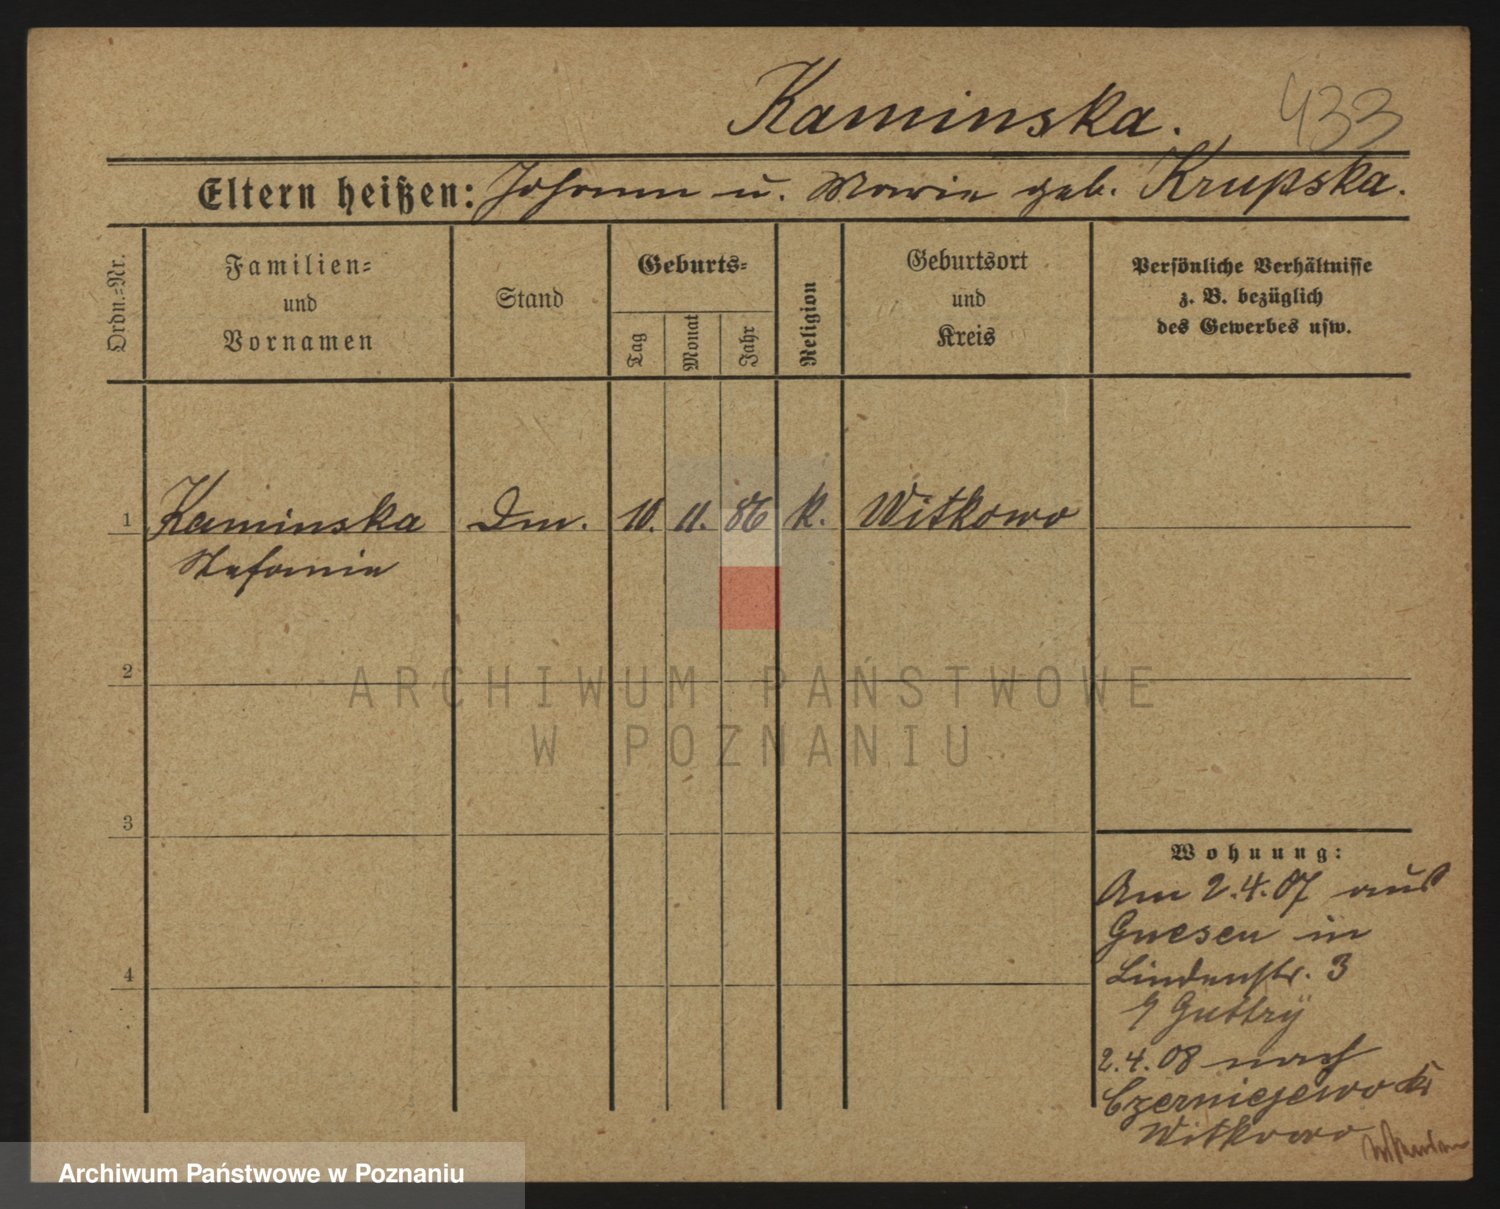 Kaminska.
433
Eltern heißen: Johann u. Marie geb. Krupska.
Ordn.-Nr.
Familien-
und
Vornamen
Stand
Geburts-
Tag
Monat
Jahr
Religion
Geburtsort
und
Kreis
Persönliche Verhältnisse
z. B. bezüglich
des Gewerbes usw.
1 Kaminska Dm. 10. 11. 86 k. Witkowo
Stefanie
2
ARCHIWUM PAŃSTWOWE
W POZNANIU
3
4
Wohnung:
Am 2.4.07 aus
Gnesen in
Lindenstr. 3
Guttry
2.4.08 nach
Czerniejewo Kr
Witkowo
Archiwum Państwowe w Poznaniu